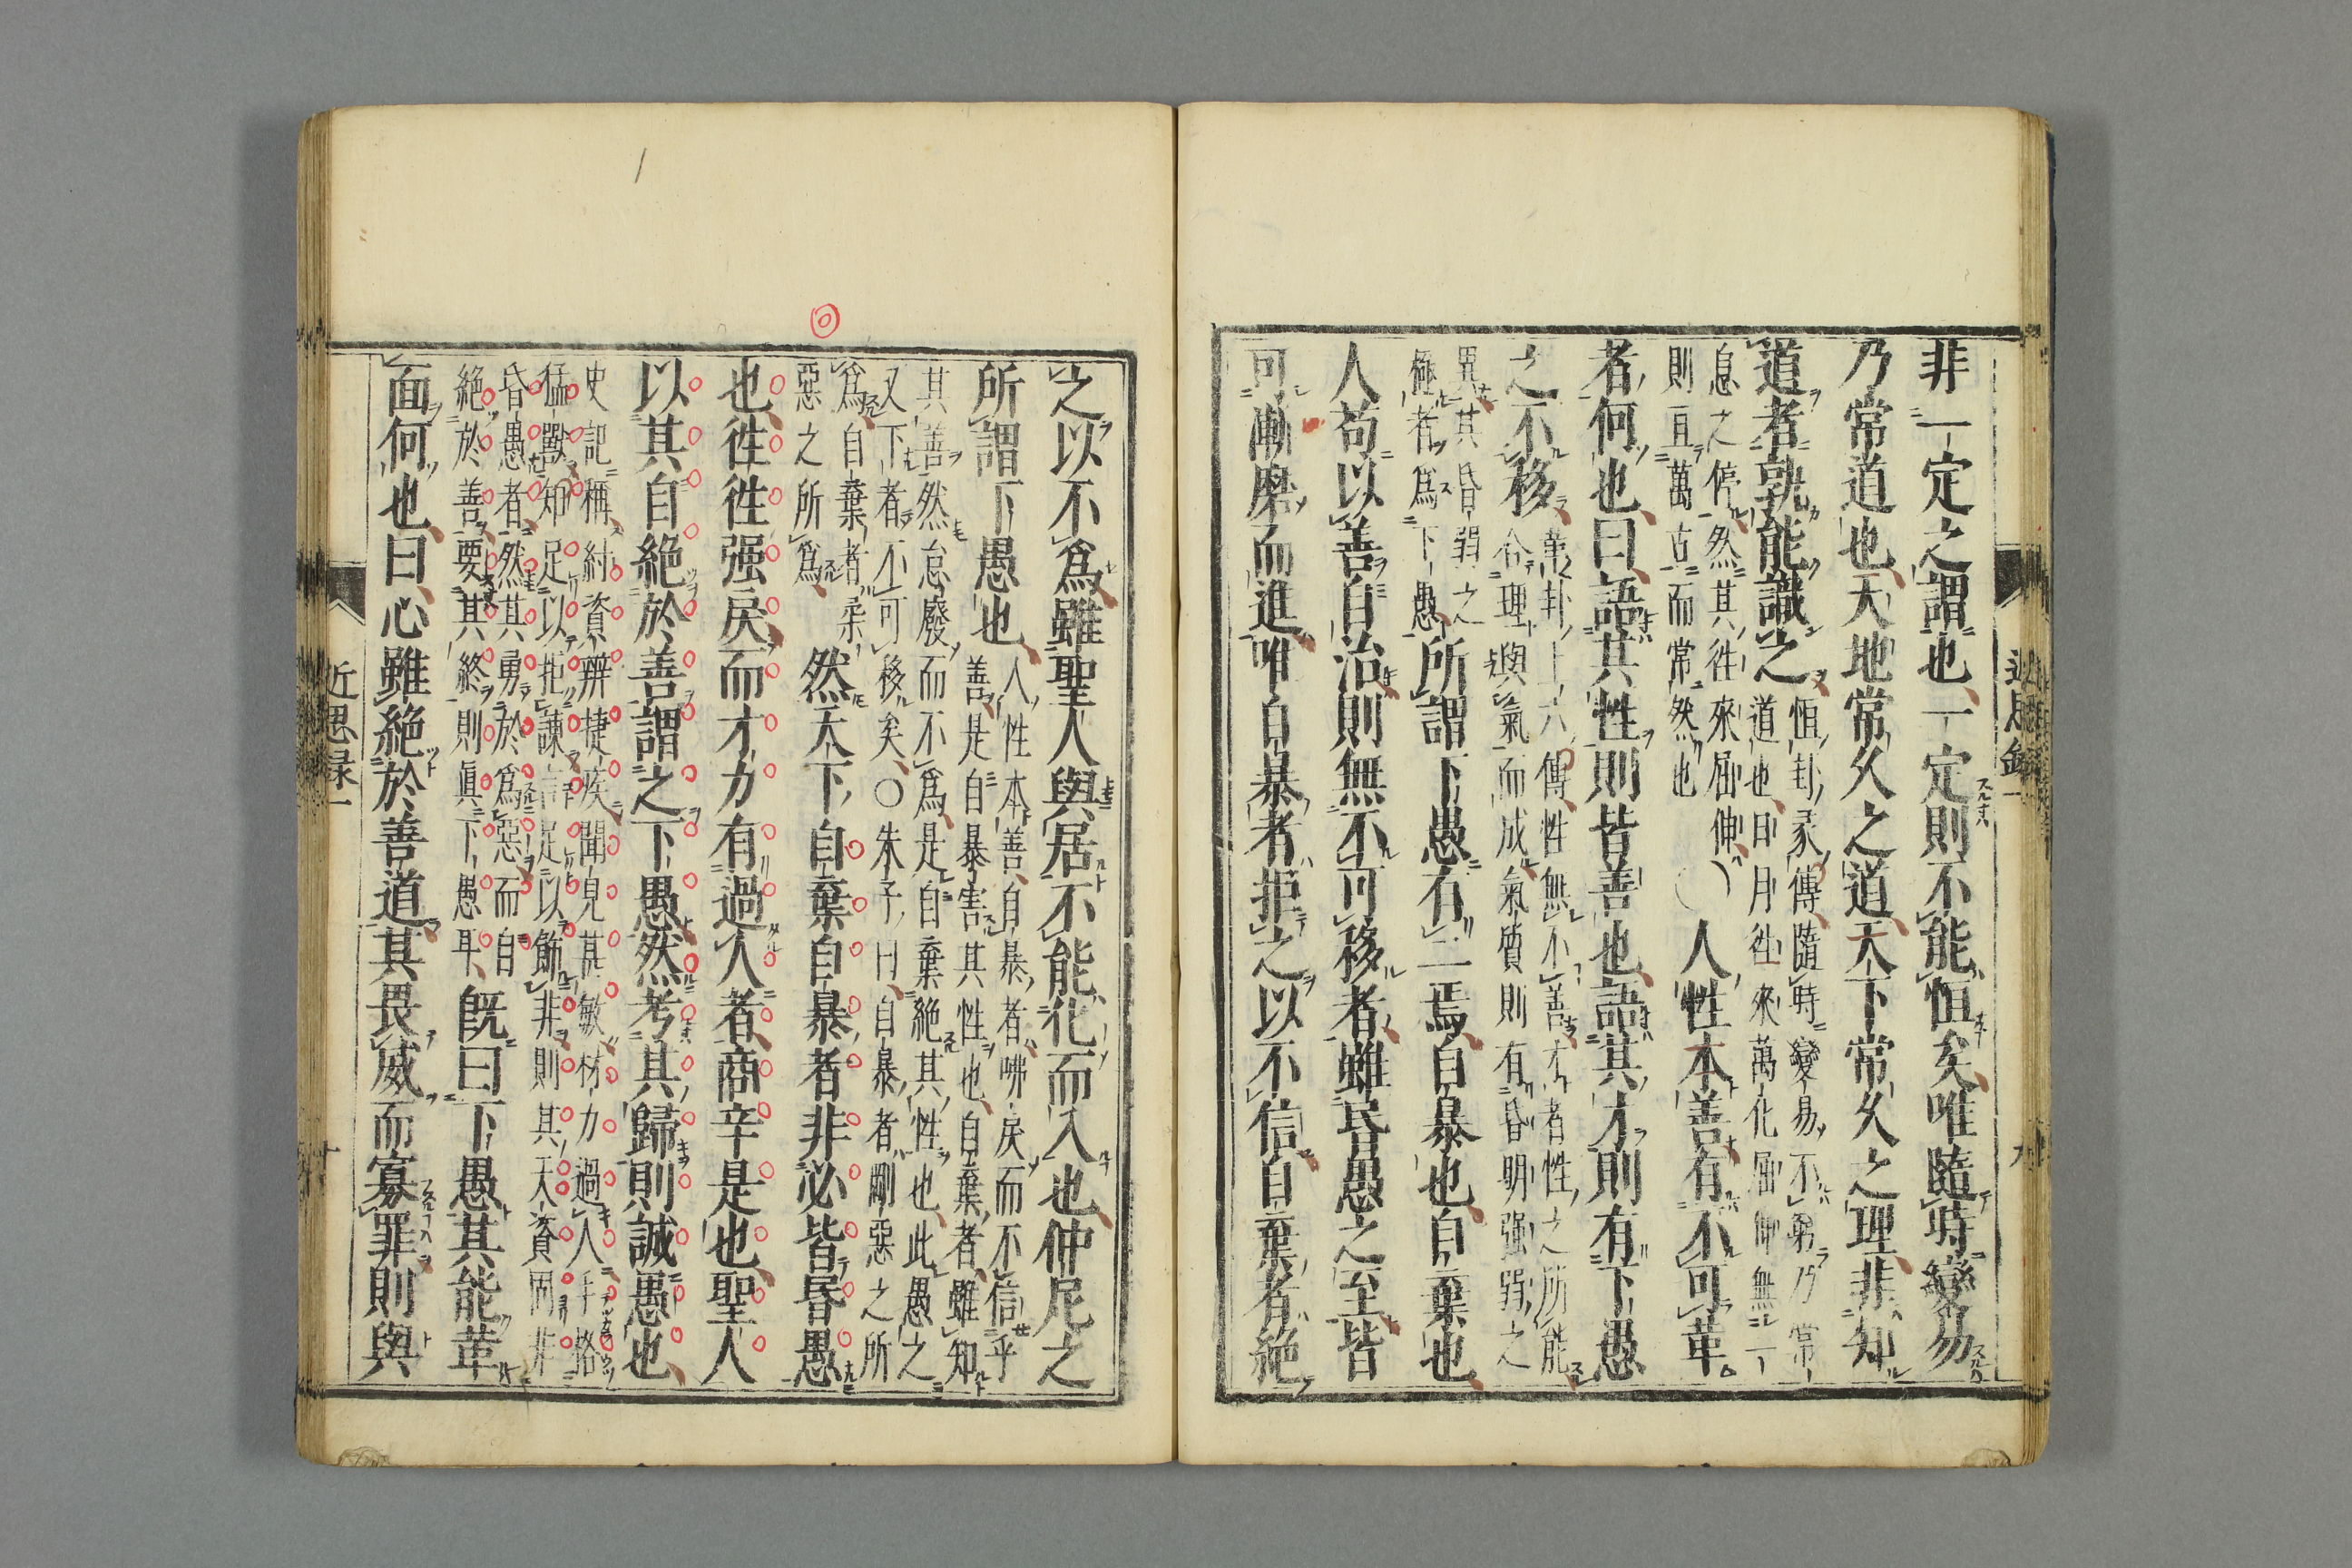 非一定之謂也一定則不能恒矣唯隨時變易
乃常道也天地常久之道天下常久之理非知
道者孰能識之
恒卦彖傳隨時變易不窮乃常
道也日月徃來萬化屈伸無一
息之停然其徃來屈伸
則亘萬古而常然也
○人性本善有不可革
者何也曰語其性則皆善也語其才則有下愚
之不移
革卦上六傳性無不善才者性之所能
合理與氣而成氣質則有昏明强弱之
異其昏弱之
極者爲下愚
所謂下愚有二焉自暴也自棄也
人苟以善自治則無不可移者雖昏愚之至皆
可漸磨而進唯自暴者拒之以不信自棄者絶
之以不爲雖聖人與居不能化而入也仲尼之
所謂下愚也
人性本善自暴者咈戾而不信乎
善是自暴害其性也自棄者雖知
其善然怠廢而不爲是自棄絶其性也此愚之
又下者不可移矣○朱子曰自暴者剛惡之所
爲自棄者柔
惡之所爲
然天下自棄自暴者非必皆昏愚
也徃徃强戾而才力有過人者商辛是也聖人
以其自絶於善謂之下愚然考其歸則誠愚也
史記稱紂資辨捷疾聞見甚敏材力過人手格
猛獸知足以拒諫言足以飾非則其天資固非
昏愚者然其勇於爲惡而自
絶於善要其終則眞下愚耳
旣曰下愚其能革
面何也曰心雖絶於善道其畏威而寡罪則與
近思録一
十